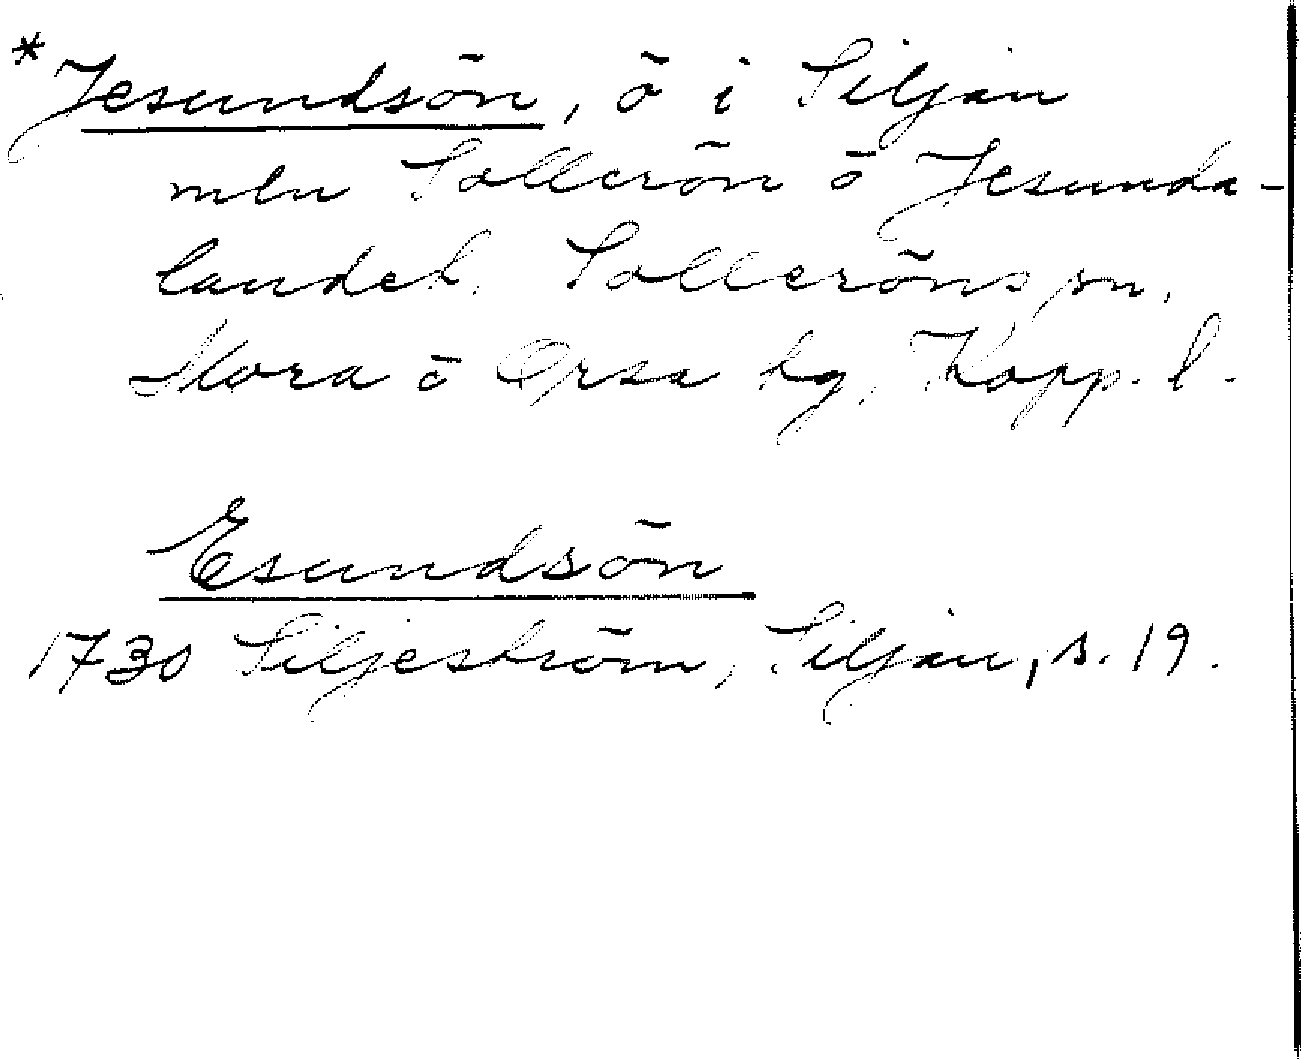 *Jesundsön, ö i Siljan
mln Sollerön o Jesunda-
landet. Solleröns sn.
Mora o Orsa tg, Kopp. l.
Esundsön
1730 Siljeström, Siljan, s. 19.